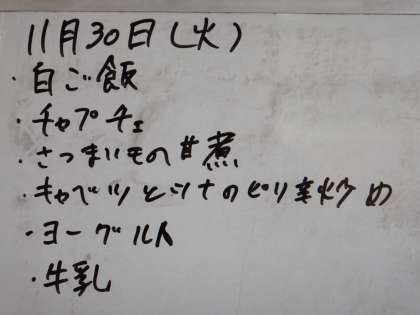 11月30日(火)
・白ご飯
・チャプチェ
・さつまいもの甘煮
・キャベツとツナのピリ辛炒め
・ヨーグルト
・牛乳